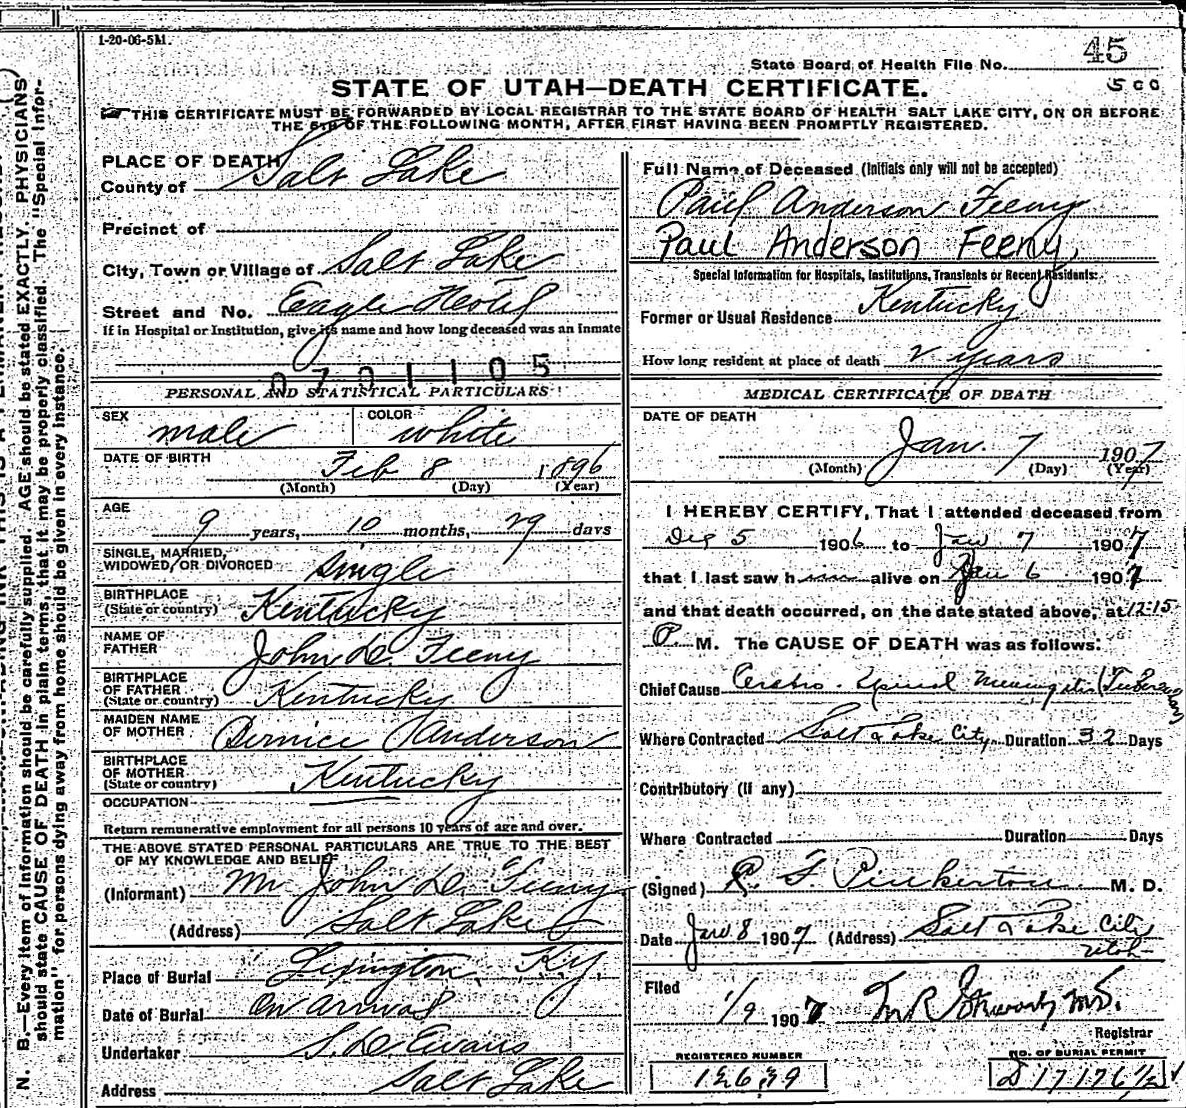 1-20-06-5M.
State Board of Health File No. 45
STATE OF UTAH—DEATH CERTIFICATE.
500
THIS CERTIFICATE MUST BE FORWARDED BY LOCAL REGISTRAR TO THE STATE BOARD OF HEALTH SALT LAKE CITY, ON OR BEFORE
THE 5TH OF THE FOLLOWING MONTH, AFTER FIRST HAVING BEEN PROMPTLY REGISTERED.
PLACE OF DEATH
County of Salt Lake
Precinct of
City, Town or Village of Salt Lake
Street and No. Eagle Hotel
If in Hospital or Institution, give its name and how long deceased was an Inmate
0701105
PERSONAL AND STATISTICAL PARTICULARS
SEX male COLOR white
DATE OF BIRTH Feb 8 1896
(Month) (Day) (Year)
AGE 9 years, 10 months, 29 days
SINGLE, MARRIED,
WIDOWED, OR DIVORCED single
BIRTHPLACE
(State or country) Kentucky
NAME OF
FATHER John D. Feeny
BIRTHPLACE
OF FATHER
(State or country) Kentucky
MAIDEN NAME
OF MOTHER Bernice Anderson
BIRTHPLACE
OF MOTHER
(State or country) Kentucky
OCCUPATION
Return remunerative employment for all persons 10 years of age and over.
THE ABOVE STATED PERSONAL PARTICULARS ARE TRUE TO THE BEST
OF MY KNOWLEDGE AND BELIEF
(Informant) Mr John D. Feeny
(Address) Salt Lake
Place of Burial Lexington Ky,
Date of Burial On arrival
Undertaker S. D. Evans
Address Salt Lake
Full Name of Deceased (Initials only will not be accepted)
Paul Anderson Feeny
Paul Anderson Feeny,
Special Information for Hospitals, Institutions, Transients or Recent Residents:
Former or Usual Residence Kentucky
How long resident at place of death 2 years
MEDICAL CERTIFICATE OF DEATH
DATE OF DEATH
Jan. 7 1907
(Month) (Day) (Year)
I HEREBY CERTIFY, That I attended deceased from
Dec 5 1906 to Jan 7 1907
that I last saw him alive on Jan 6 1907
and that death occurred, on the date stated above, at 12:15
P M. The CAUSE OF DEATH was as follows:
Chief Cause Cerebro-Spinal Meningitis
Where Contracted Salt Lake City Duration 32 Days
Contributory (if any)
Where Contracted Duration Days
(Signed) R. F. Pinkerton M. D.
Date Jan 8 1907 (Address) Salt Lake City
Utah
Filed
1/9 1907 M.D.
Registrar
REGISTERED NUMBER
12639
NO. OF BURIAL PERMIT
D 17176 1/2
N. B.—Every item of information should be carefully supplied. AGE should be stated EXACTLY. PHYSICIANS
should state CAUSE OF DEATH in plain terms, that it may be properly classified. The "Special Infor-
mation" for persons dying away from home should be given in every instance.